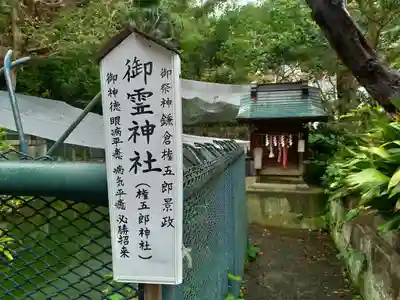 御祭神鎌倉権五郎景政
御霊神社
(権五郎神社)
御神徳眼病平癒 病気平癒 必勝招来